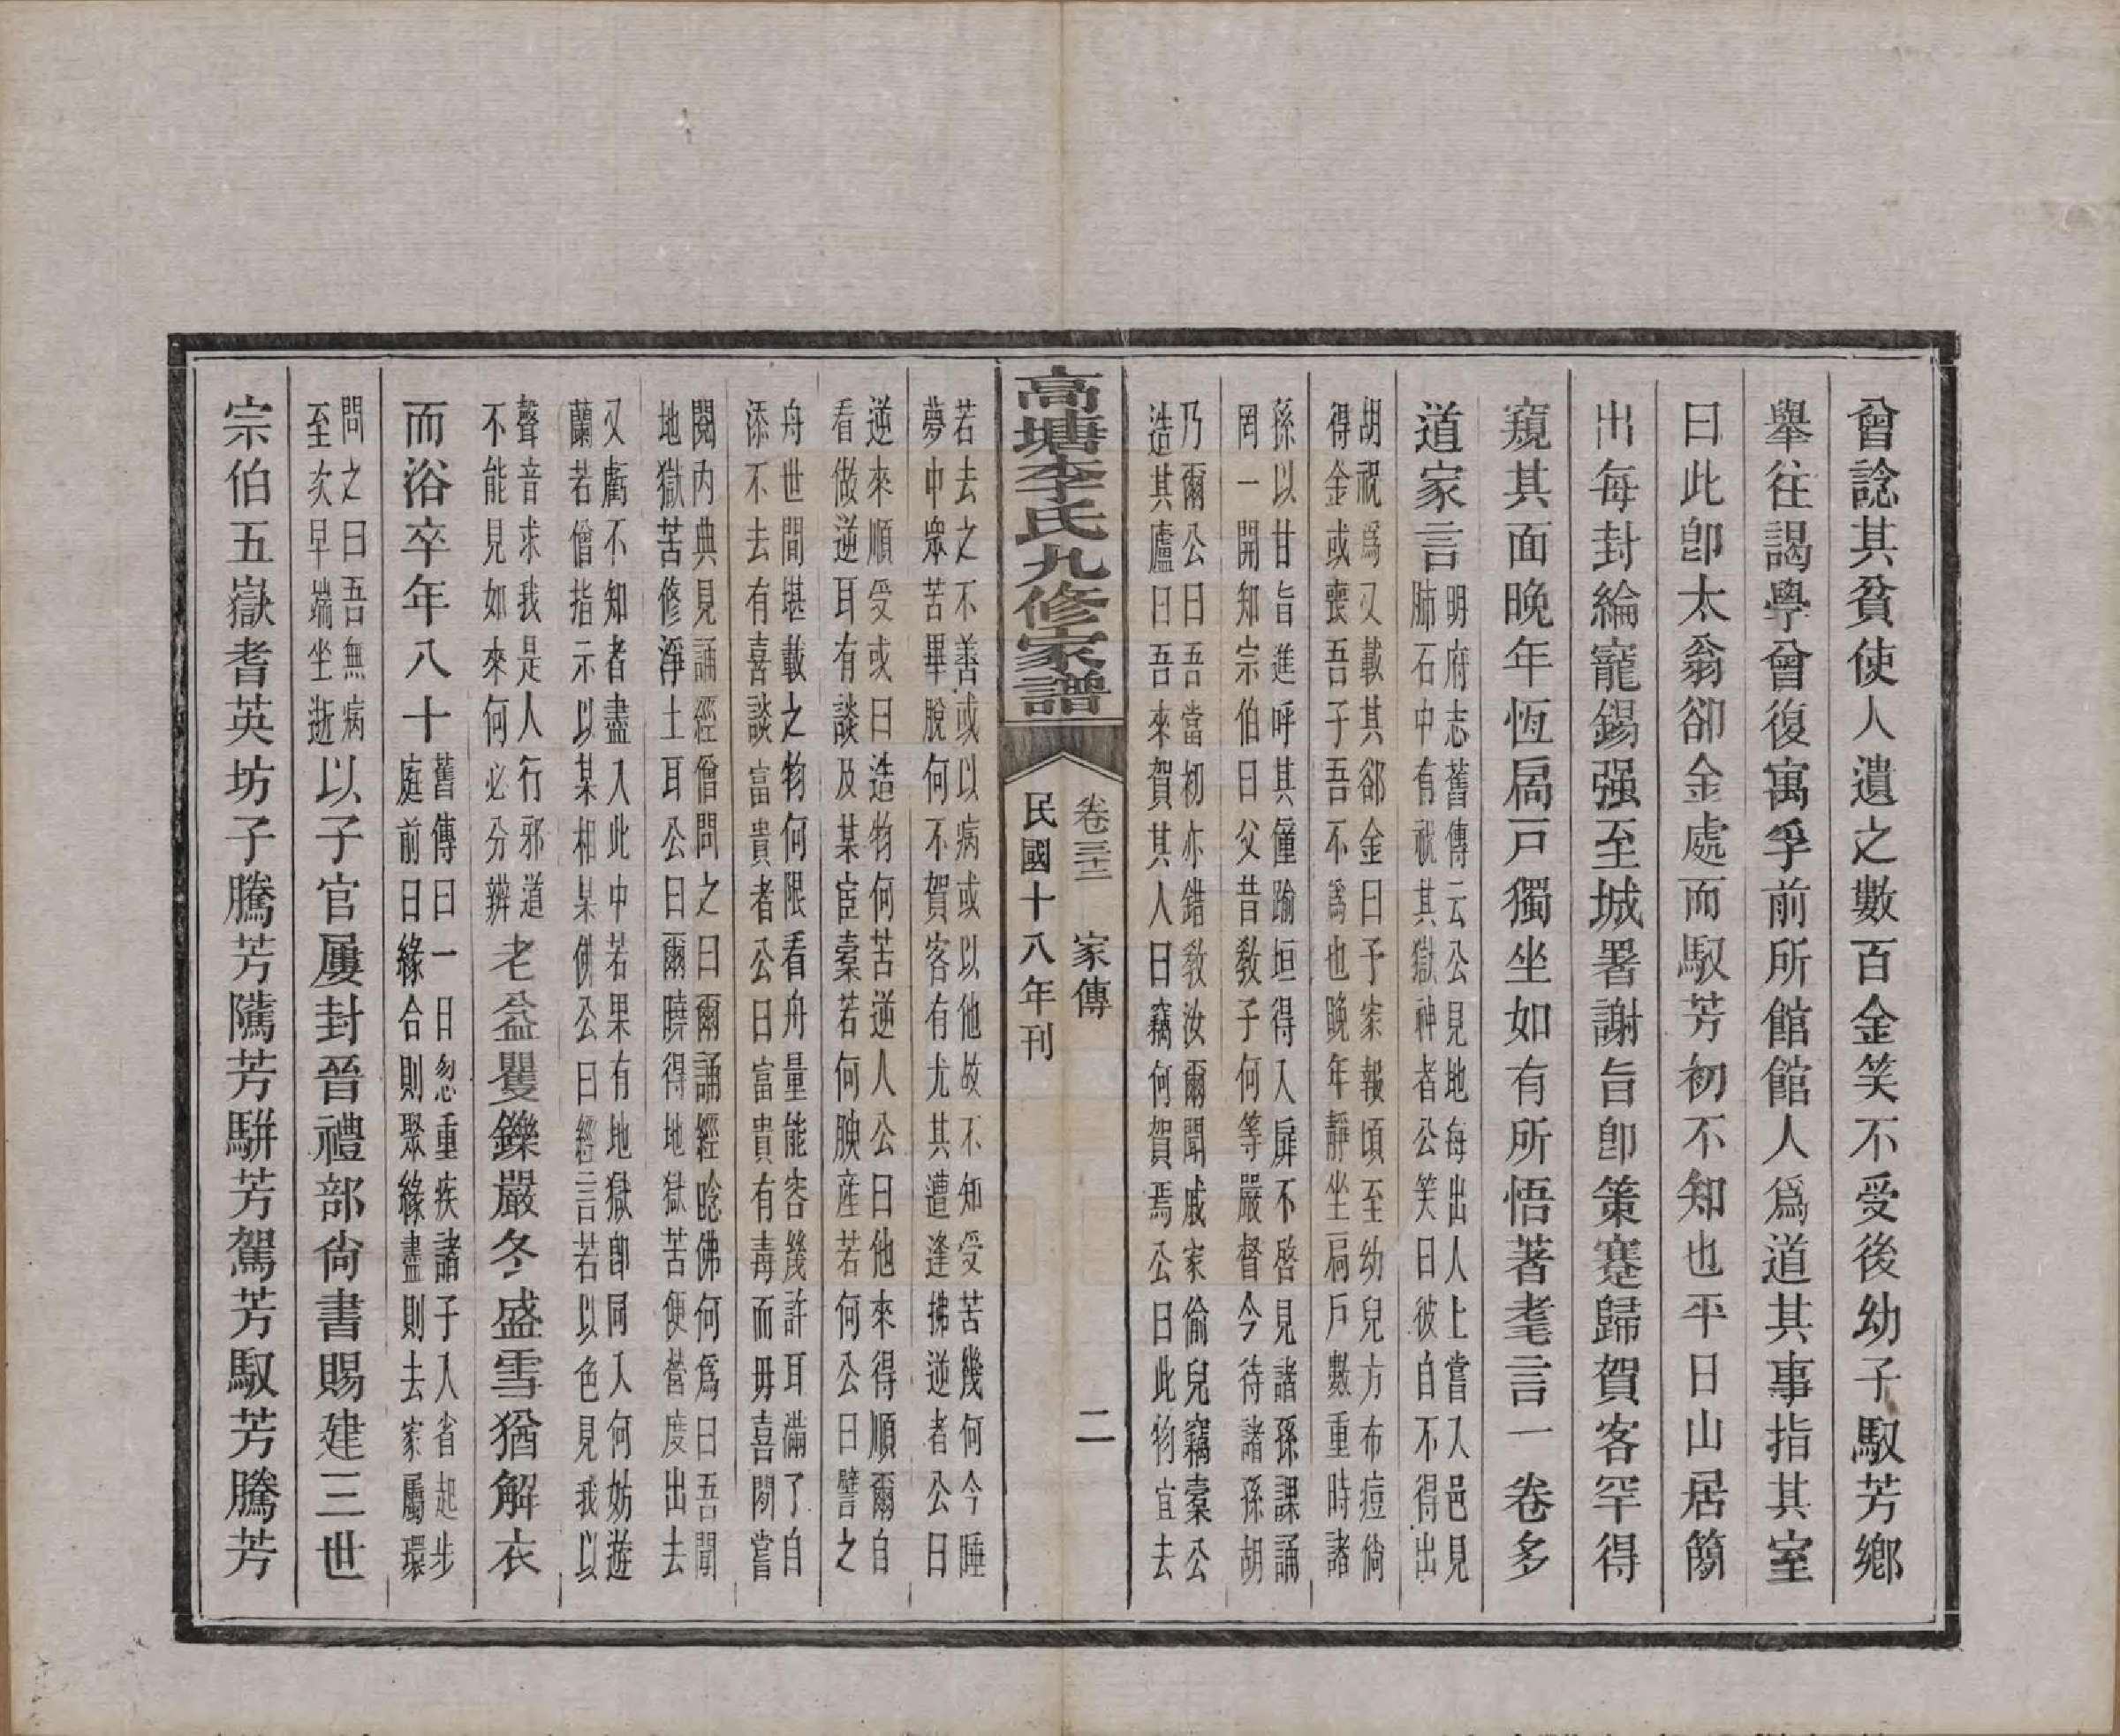 曾諗其貧使人遺之數百金笑不受後幼子馭芳鄉
舉往謁學曾復寓孚前所館館人爲道其事指其室
曰此卽太翁卻金處而馭芳初不知也平日山居簡
出每封綸寵錫强至城署謝旨卽策蹇歸賀客罕得
窺其面晚年恆扃戶獨坐如有所悟著耄言一卷多
道家言
明府志舊傳云公見地每出人上嘗入邑見
肺石中有祝其獄神者公笑曰彼自不得出
胡祝爲又載其郤金曰予家報頃至幼兒方布痘倘
得金或喪吾子吾不爲也晚年靜坐一扃戶數重時諸
孫以甘旨進呼其僮踰垣得入扉不啓見諸孫課誦
罔一開知宗伯曰父昔敎子何等嚴督今待諸孫胡
乃爾公曰吾當初亦錯敎汝爾聞戚家偷兒竊橐公
造其廬曰吾來賀其人曰竊何賀焉公曰此物宜去
高塘李氏九修家譜
卷三十二 家傳 二
民國十八年刊
若去之不善或以病或以他故不知受苦幾何今睡
夢中衆苦畢脫何不賀客有尤其遭逢拂逆者公曰
逆來順受或曰造物何苦逆人公曰他來得順爾自
看做逆耳有談及某宦橐若何腴産若何公曰譬之
舟世間堪載之物何限看舟量能容幾許耳滿了自
添不去有喜談富貴者公曰富貴有毒而毋喜閱嘗
閱內典見誦經僧問之曰爾誦經唸佛何爲曰吾聞
地獄苦修淨土耳公曰爾曉得地獄苦便營度出去
又廳不知者盡入此中若果有地獄卽同入何妨遊
蘭若僧指示以某相某佛公曰經言若以色見我以
聲音求我是人行邪道
不能見如來何必分辨
老益矍鑠嚴冬盛雪猶解衣
而浴卒年八十
舊傳曰一日忽重疾諸子入省起步
庭前曰緣合則聚緣盡則去家屬環
問之曰吾無病
至次早端坐逝
以子官屢封晉禮部尙書賜建三世
宗伯五嶽耆英坊子騰芳隲芳騈芳駕芳馭芳騰芳